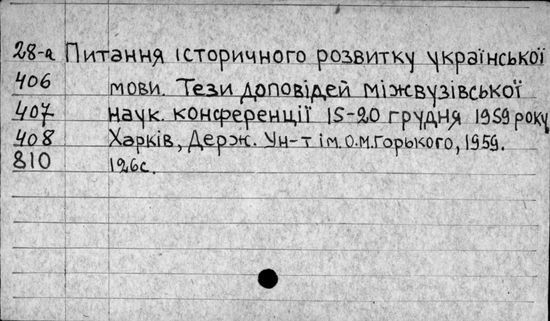 28-а Питання історичного розвитку української
406 мови. Тези доповідей міжвузівської
407 наук. конференції 15-20 грудня 1959 року
408 Харків, Держ. Ун-т ім. О.М.Горького, 1959.
810 126с.